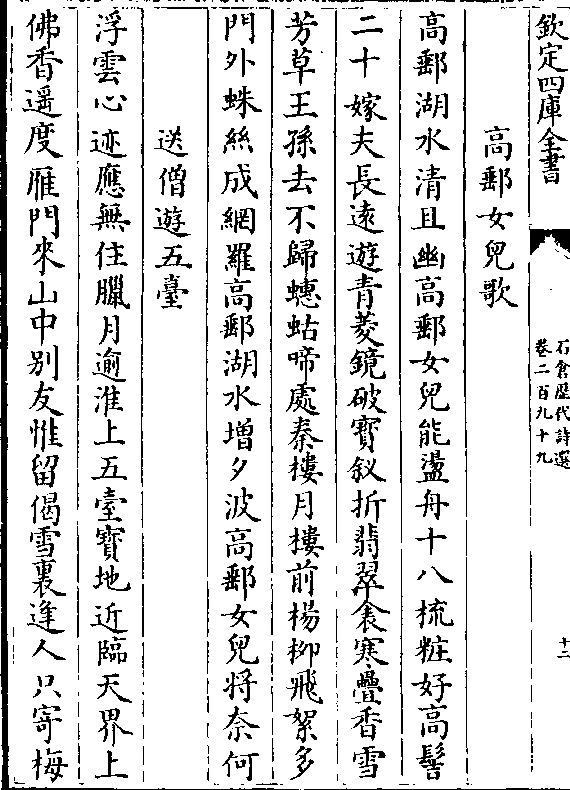 欽定四庫全書
石倉歴代詩選
卷二百九十九
十二
高郵女兒歌
高郵湖水清且幽高郵女兒能盪舟十八梳粧好高髻
二十嫁夫長遠遊青菱鏡破寳釵折翡翠衾寒疊香雪
芳草王孫去不歸蟪蛄啼處秦樓月樓前楊柳飛絮多
門外蛛絲成網羅高郵湖水增夕波高郵女兒将奈何
送僧遊五臺
浮雲心迹應無住臘月逾淮上五臺寳地近臨天界上
佛香遥度雁門來山中别友惟留偈雪裏逢人只寄梅